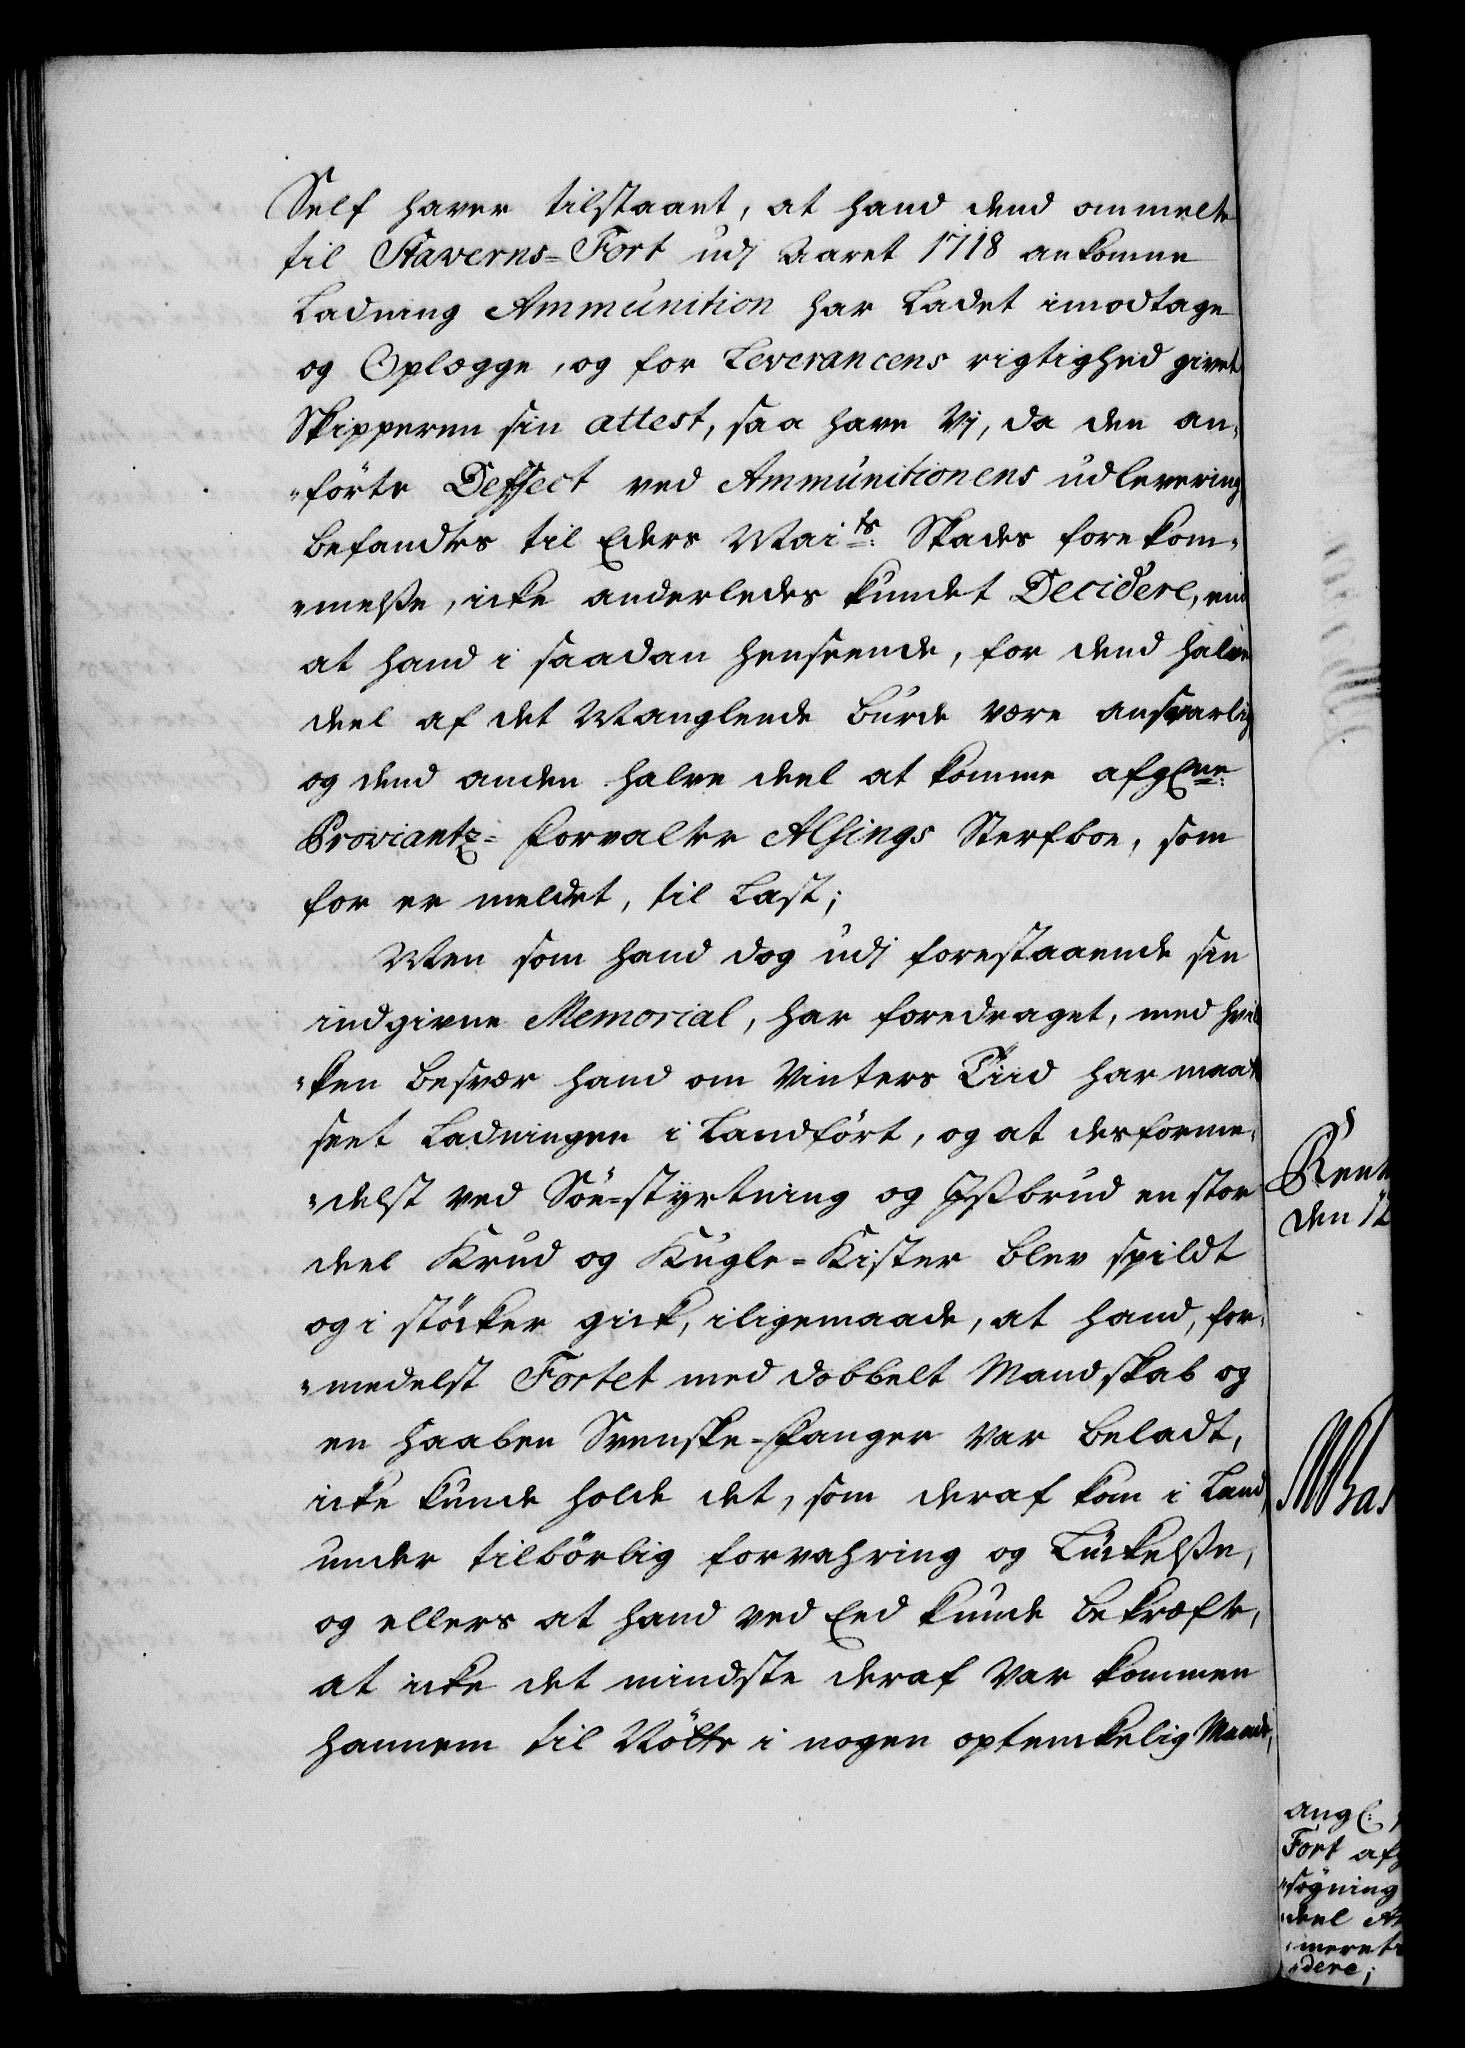 Self haver tilstaaet, at hand dend ommelte
til Staverns-Fort udj Aaret 1718 ankomne
Ladning Ammunition har Ladet imodtage
og Oplægge, og for Leverancens rigtighed givet
Skipperen sin attest, saa have Vj, da den an„
„förte Deffect ved Ammunitionens udlevering
befandtes til Eders Maits: Skades forekom„
„melße, icke anderledes kundet Decidere, end
at hand i saadan henseende, for dend halve
deel af det Manglende burde være ansvarlig
og dend anden halve deel at komme afgl:ne
Proviantz-forvalter Alsings Sterfboe, som
for er meldet, til Last;
Men som hand dog udj forestaaende sin
indgivne Memorial, har foredraget, med hvil
„ken besvær hand om Vinters Tiid har maat
seet Ladningen i Landfört, og at desforme„
„delst ved Söe-styrtning og Jßbrud en stor
deel Krud og Kugle-Kister blev spildt
og i stöcker gick, iligemaade, at hand, for„
„medelst Fortet med dobbelt Mandskab og
en haaben Svenske-fanger var beladt,
icke kunde holde det, som deraf kom i Land
under tilbörlig forvahring og Luckelße,
og ellers at hand ved Eed kunde bekræfte,
at icke det mindste deraf var kommen
hannem til Nötte i nogen optenckelig Maade,
Rent
den 12
angl:
Fort af
„søgning
„deel
„meret
„dere;